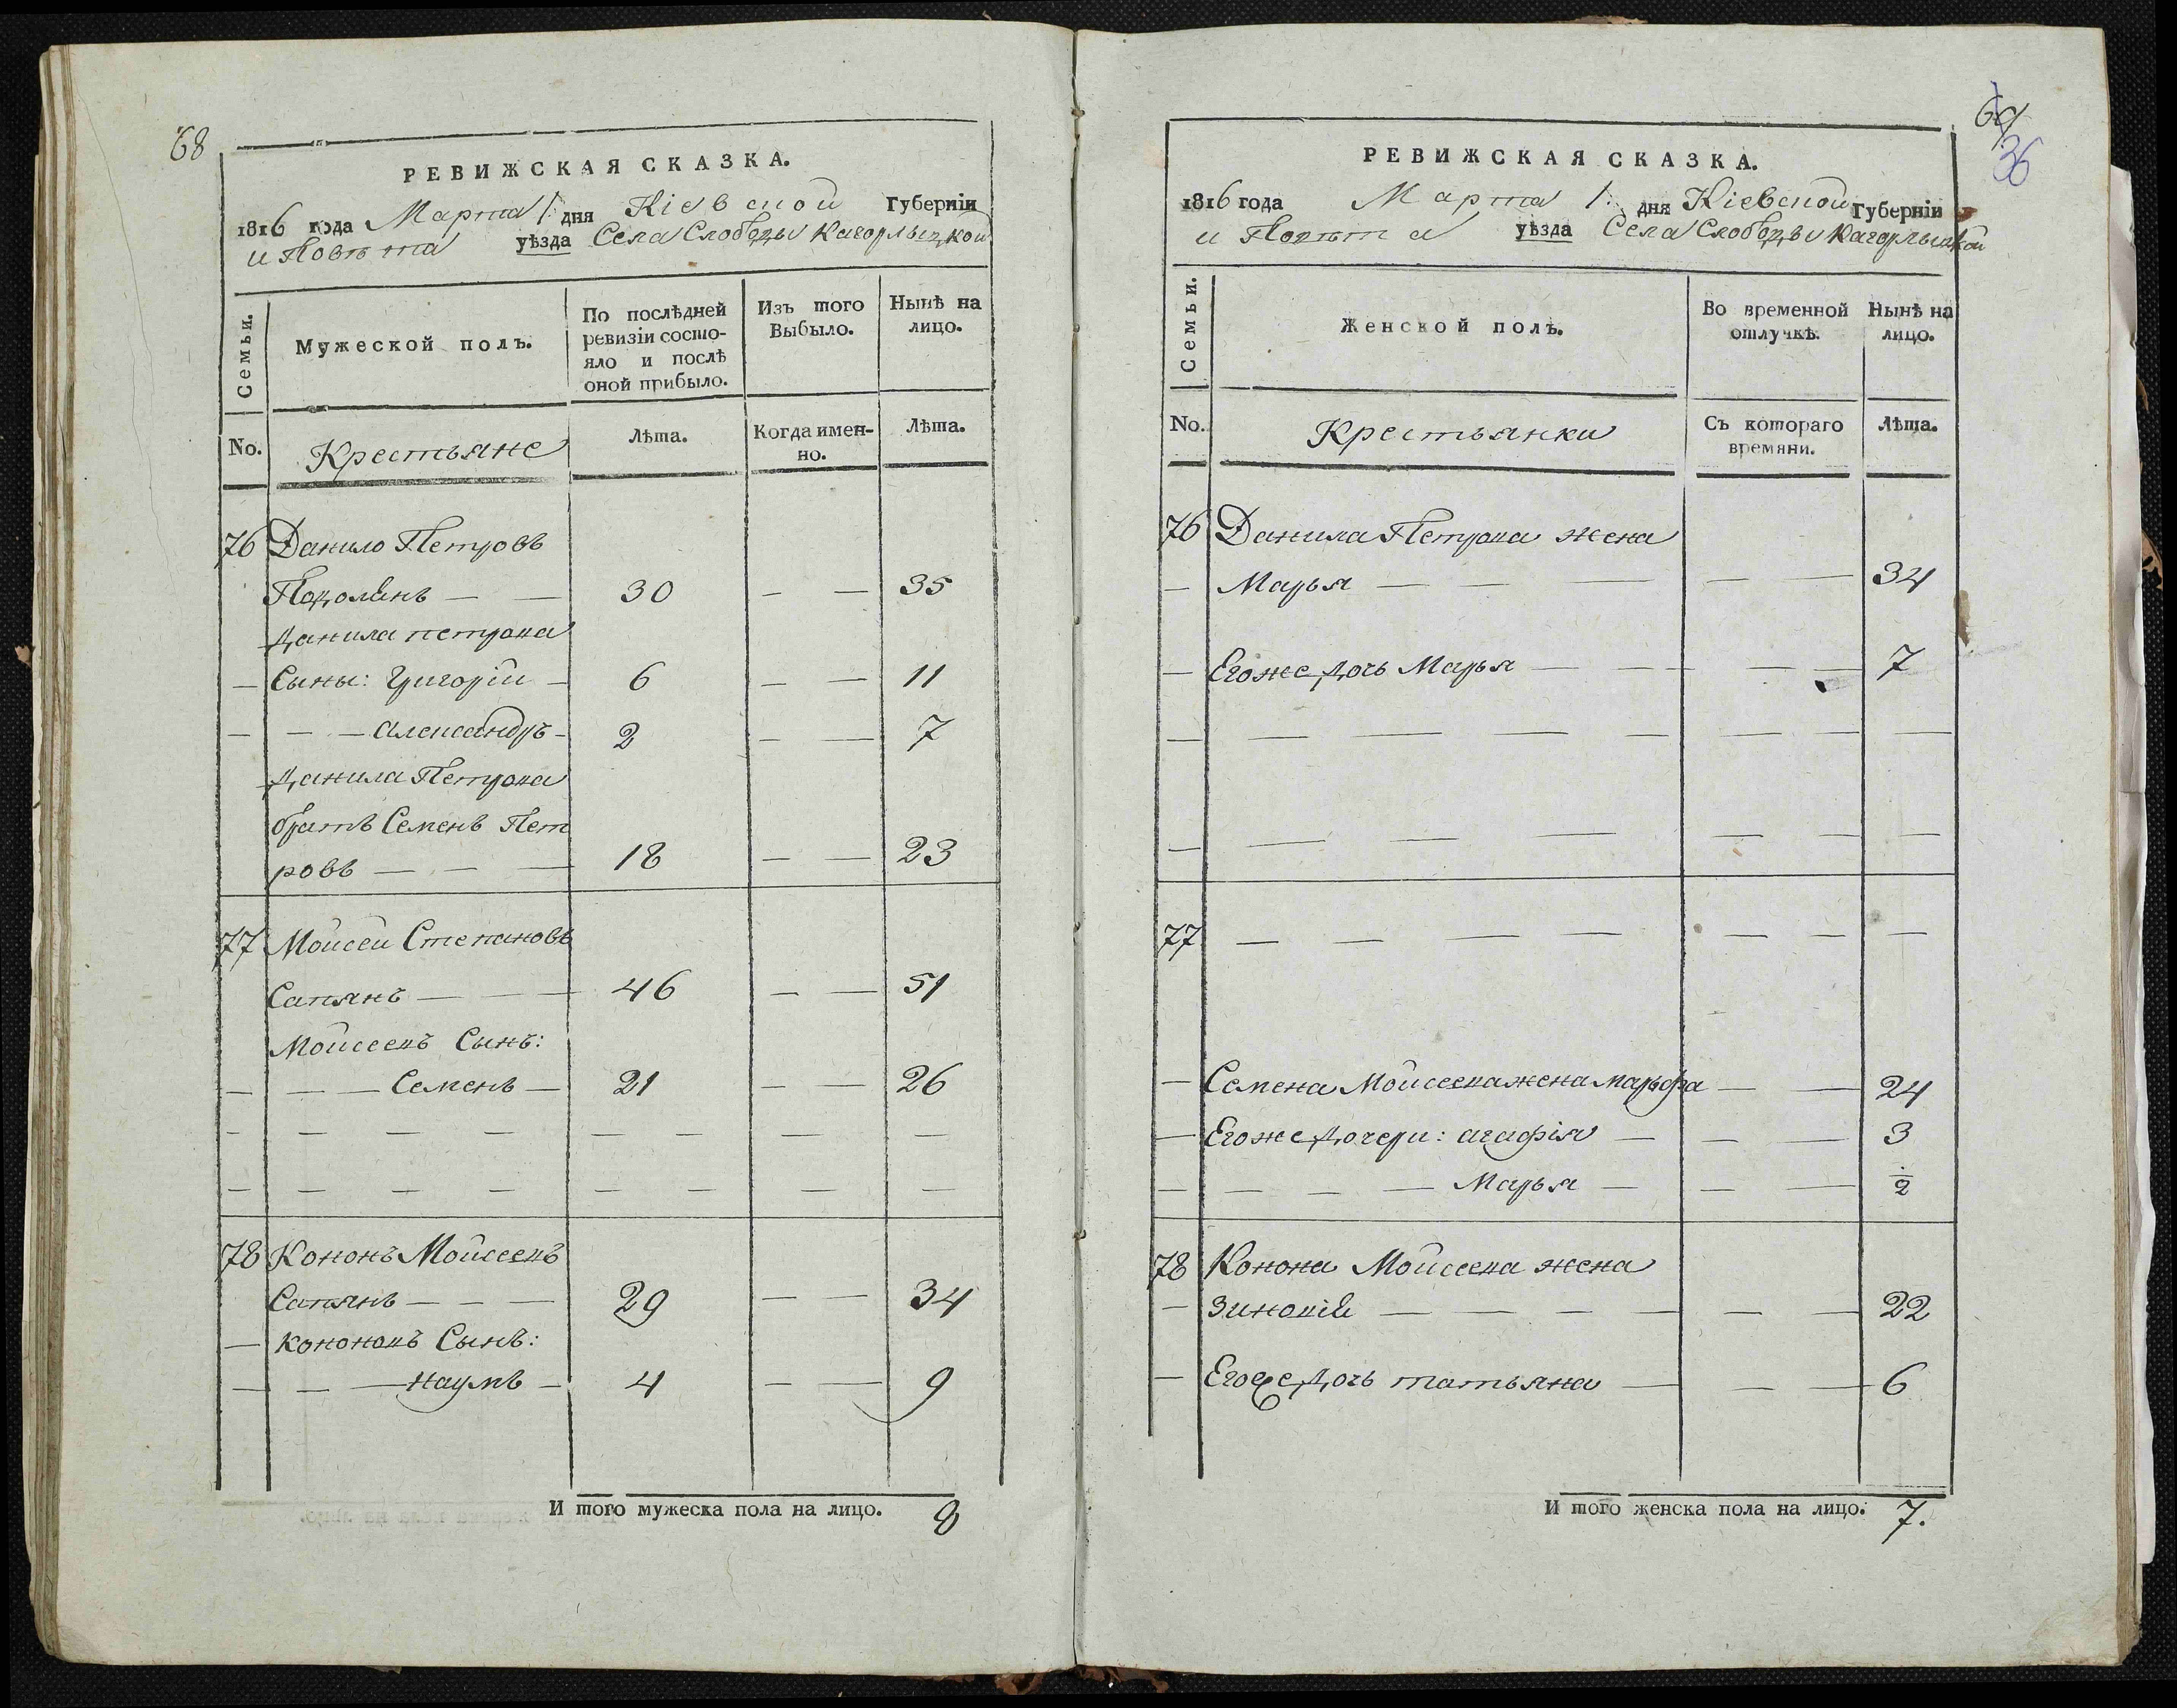 68
РЕВИЖСКАЯ СКАЗКА.
1816 года Марта 1: дня Кіевской Губерніи
и Повѣта уѣзда Села Слободы Кагорлыцкой
Семьи.
Мужеской полъ.
По послѣдней ревизіи состо-
яло и послѣ
оной прибыло.
Изъ того
Выбыло.
Нынѣ на
лицо.
No.
Крестьяне
Лѣта.
Когда имен-
но.
Лѣта.
76 Данило Петровъ
Подолянъ — — 30 — — 35
Данила петрова
— Сыны: Григорій — 6 — — 11
— — — Александръ — 2 — — 7
Данила Петрова
братъ Семенъ Пет
ровъ — — — 18 — — 23
77 Мойсей Степановъ
Сапянъ — — — 46 — — 51
Мойсеевъ Сынъ:
— — — Семенъ — 21 — — 26
— — — — — — — — —
— — — — — — — — —
78 Кононъ Мойсеевъ
Сапянъ — — — 29 — — 34
— Кононовъ Сынъ:
— — — Наумъ — 4 — — 9
И того мужеска пола на лицо. 8
69
36
РЕВИЖСКАЯ СКАЗКА.
1816 года Марта 1: дня Кіевской Губерніи
и Повѣта уѣзда Села Слободы Кагорлыцкой
Семьи.
Женской полъ.
Во временной
отлучкѣ.
Нынѣ на
лицо.
No.
Крестьянки
Съ котораго
времяни.
Лѣта.
76 Данила Петрова жена
— Марья — — — — — 34
— Егоже дочь Марья — — — — — 7
— — — — — — — — — —
— — — — — — — —
77 — — — — — — —
— Семена Мойсеева жена марьфа — — 24
— Егоже дочери: агафія — — — 3
— — — — Марья — — — 1/2
78 Конона Мойсеева жена
— Зиновія — — — — — — 22
— Егоже дочь татьяна — — — 6
И того женска пола на лицо: 7.